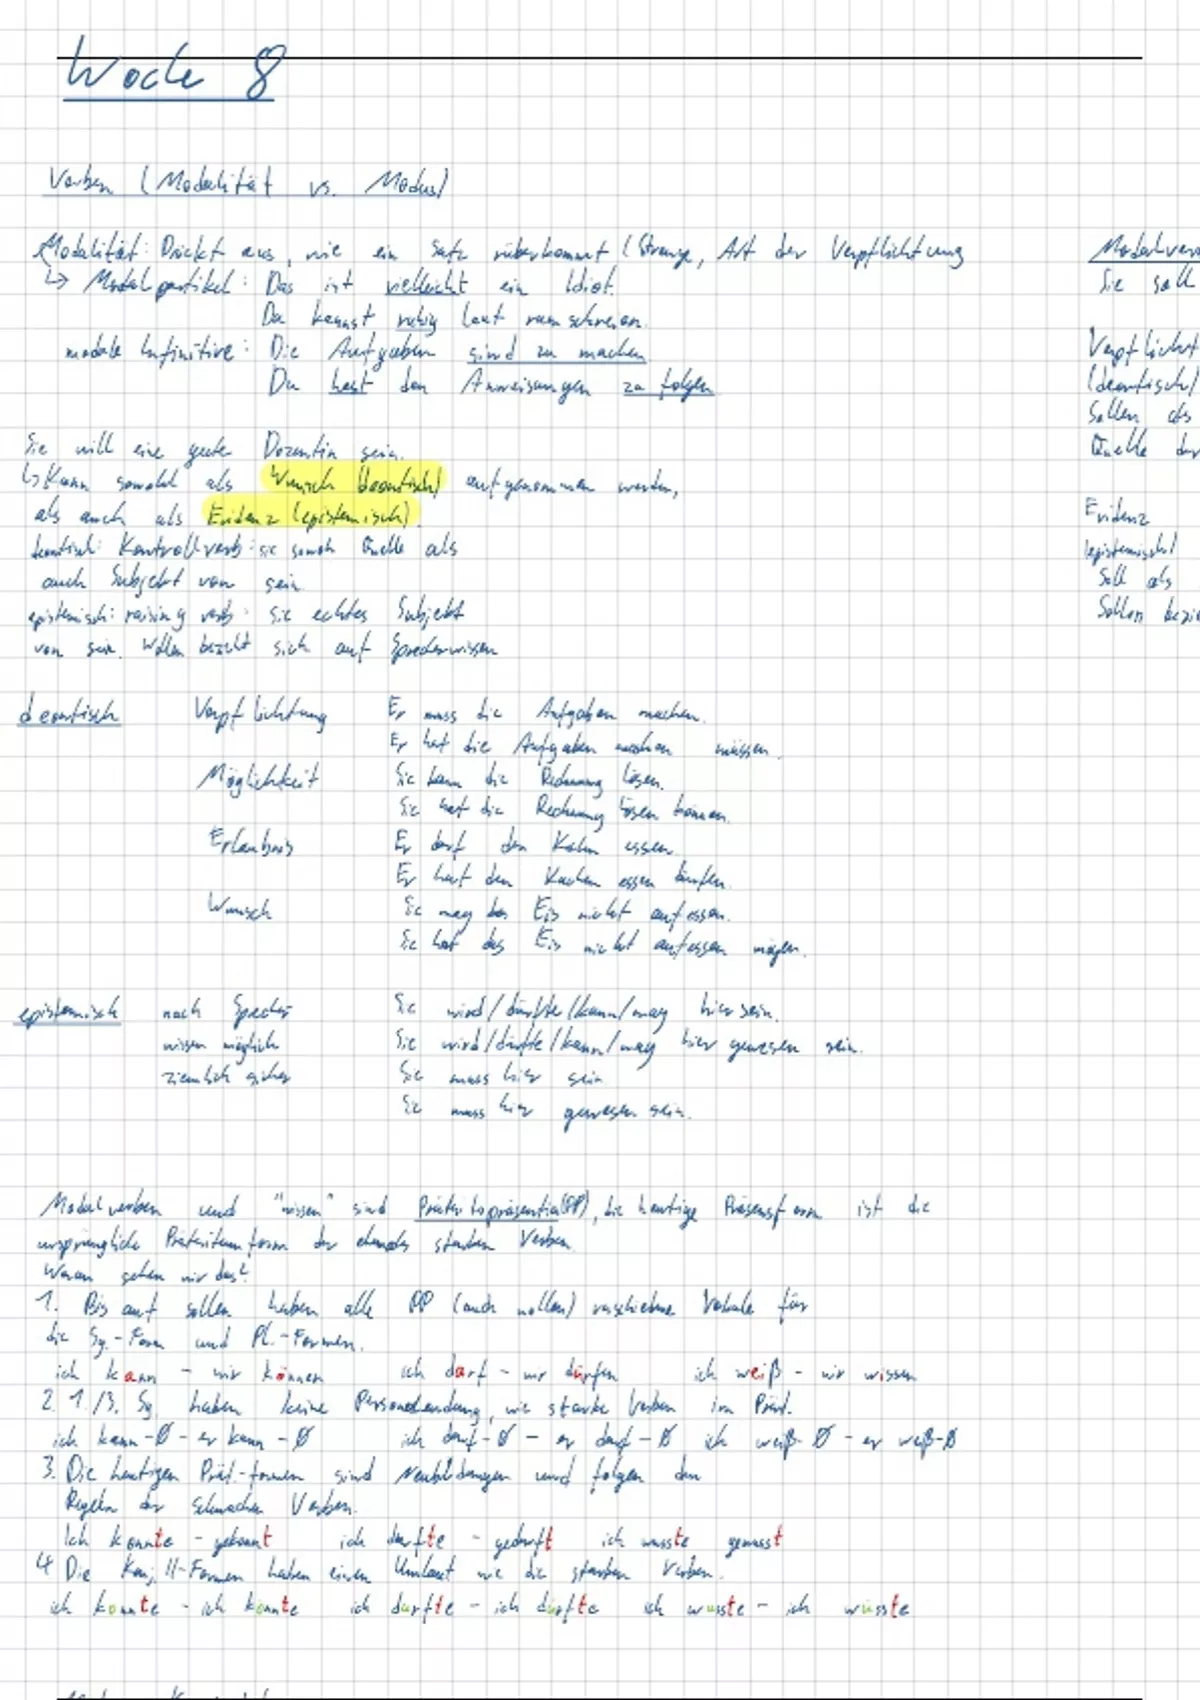 Woche 8
Verben (Modalität vs. Modus)
Modalität: Drückt aus, wie ein Satz rüberkommt (Strenge, Art der Verpflichtung
↳ Modalpartikel: Das ist vielleicht ein Idiot.
Du kannst ruhig laut rumschreien.
modale Infinitive: Die Aufgaben sind zu machen
Du hast den Anweisungen zu folgen
Sie will eine gute Dozentin sein.
↳ Kann sowohl als Wunsch (deontisch) aufgenommen werden,
als auch als Evidenz (epistemisch).
deontisch: Kontrollverb: sie sowoh Quelle als
auch Subjekt von sein
epistemisch: raising verb: sie echtes Subjekt
von sein. Wollen bezieht sich auf Sprecherwissen
deontisch Verpflichtung Er muss die Aufgaben machen.
Er hat die Aufgaben machen müssen.
Möglichkeit Sie kann die Rechnung lösen.
Sie hat die Rechnung lösen können.
Erlaubnis Er darf den Kuchen essen.
Er hat den Kuchen essen dürfen.
Wunsch Sie mag das Eis nicht aufessen.
Sie hat das Eis nicht aufessen mögen.
epistemisch nach Sprecher Sie wird/dürfte/kann/mag hier sein.
wissen möglich Sie wird/dürfte/kann/mag hier gewesen sein.
ziemlich sicher Sie muss hier sein
Sie muss hier gewesen sein.
Modalverben und "wissen" sind Präteritopräsentia(PP), die heutige Präsensform ist die
ursprüngliche Präteritumform der ehemals starken Verben.
Woran sehen wir das?
1. Bis auf sollen haben alle PP (auch wollen) verschiedene Vokale für
die Sg.-Form und Pl.-Formen.
ich kann - wir können ich darf - wir dürfen ich weiß - wir wissen
2. 1./3. Sg. haben keine Personalendung, wie starke Verben im Prät.
ich kann-Ø - er kann-Ø ich darf-Ø - er darf-Ø ich weiß-Ø - er weiß-Ø
3. Die heutigen Prät.-formen sind Neubildungen und folgen den
Regeln der schwachen Verben.
Ich konnte - gekonnt ich durfte - gedurft ich wusste gewusst
4 Die Konj. II-Formen haben einen Umlaut wie die starken Verben.
ich konnte - ich könnte ich durfte - ich dürfte ich wusste - ich wüsste
Modalver
Sie soll
Verpflicht
(deontisch)
Sollen als
Quelle der
Evidenz
(epistemisch)
Soll als
Sollen bezie